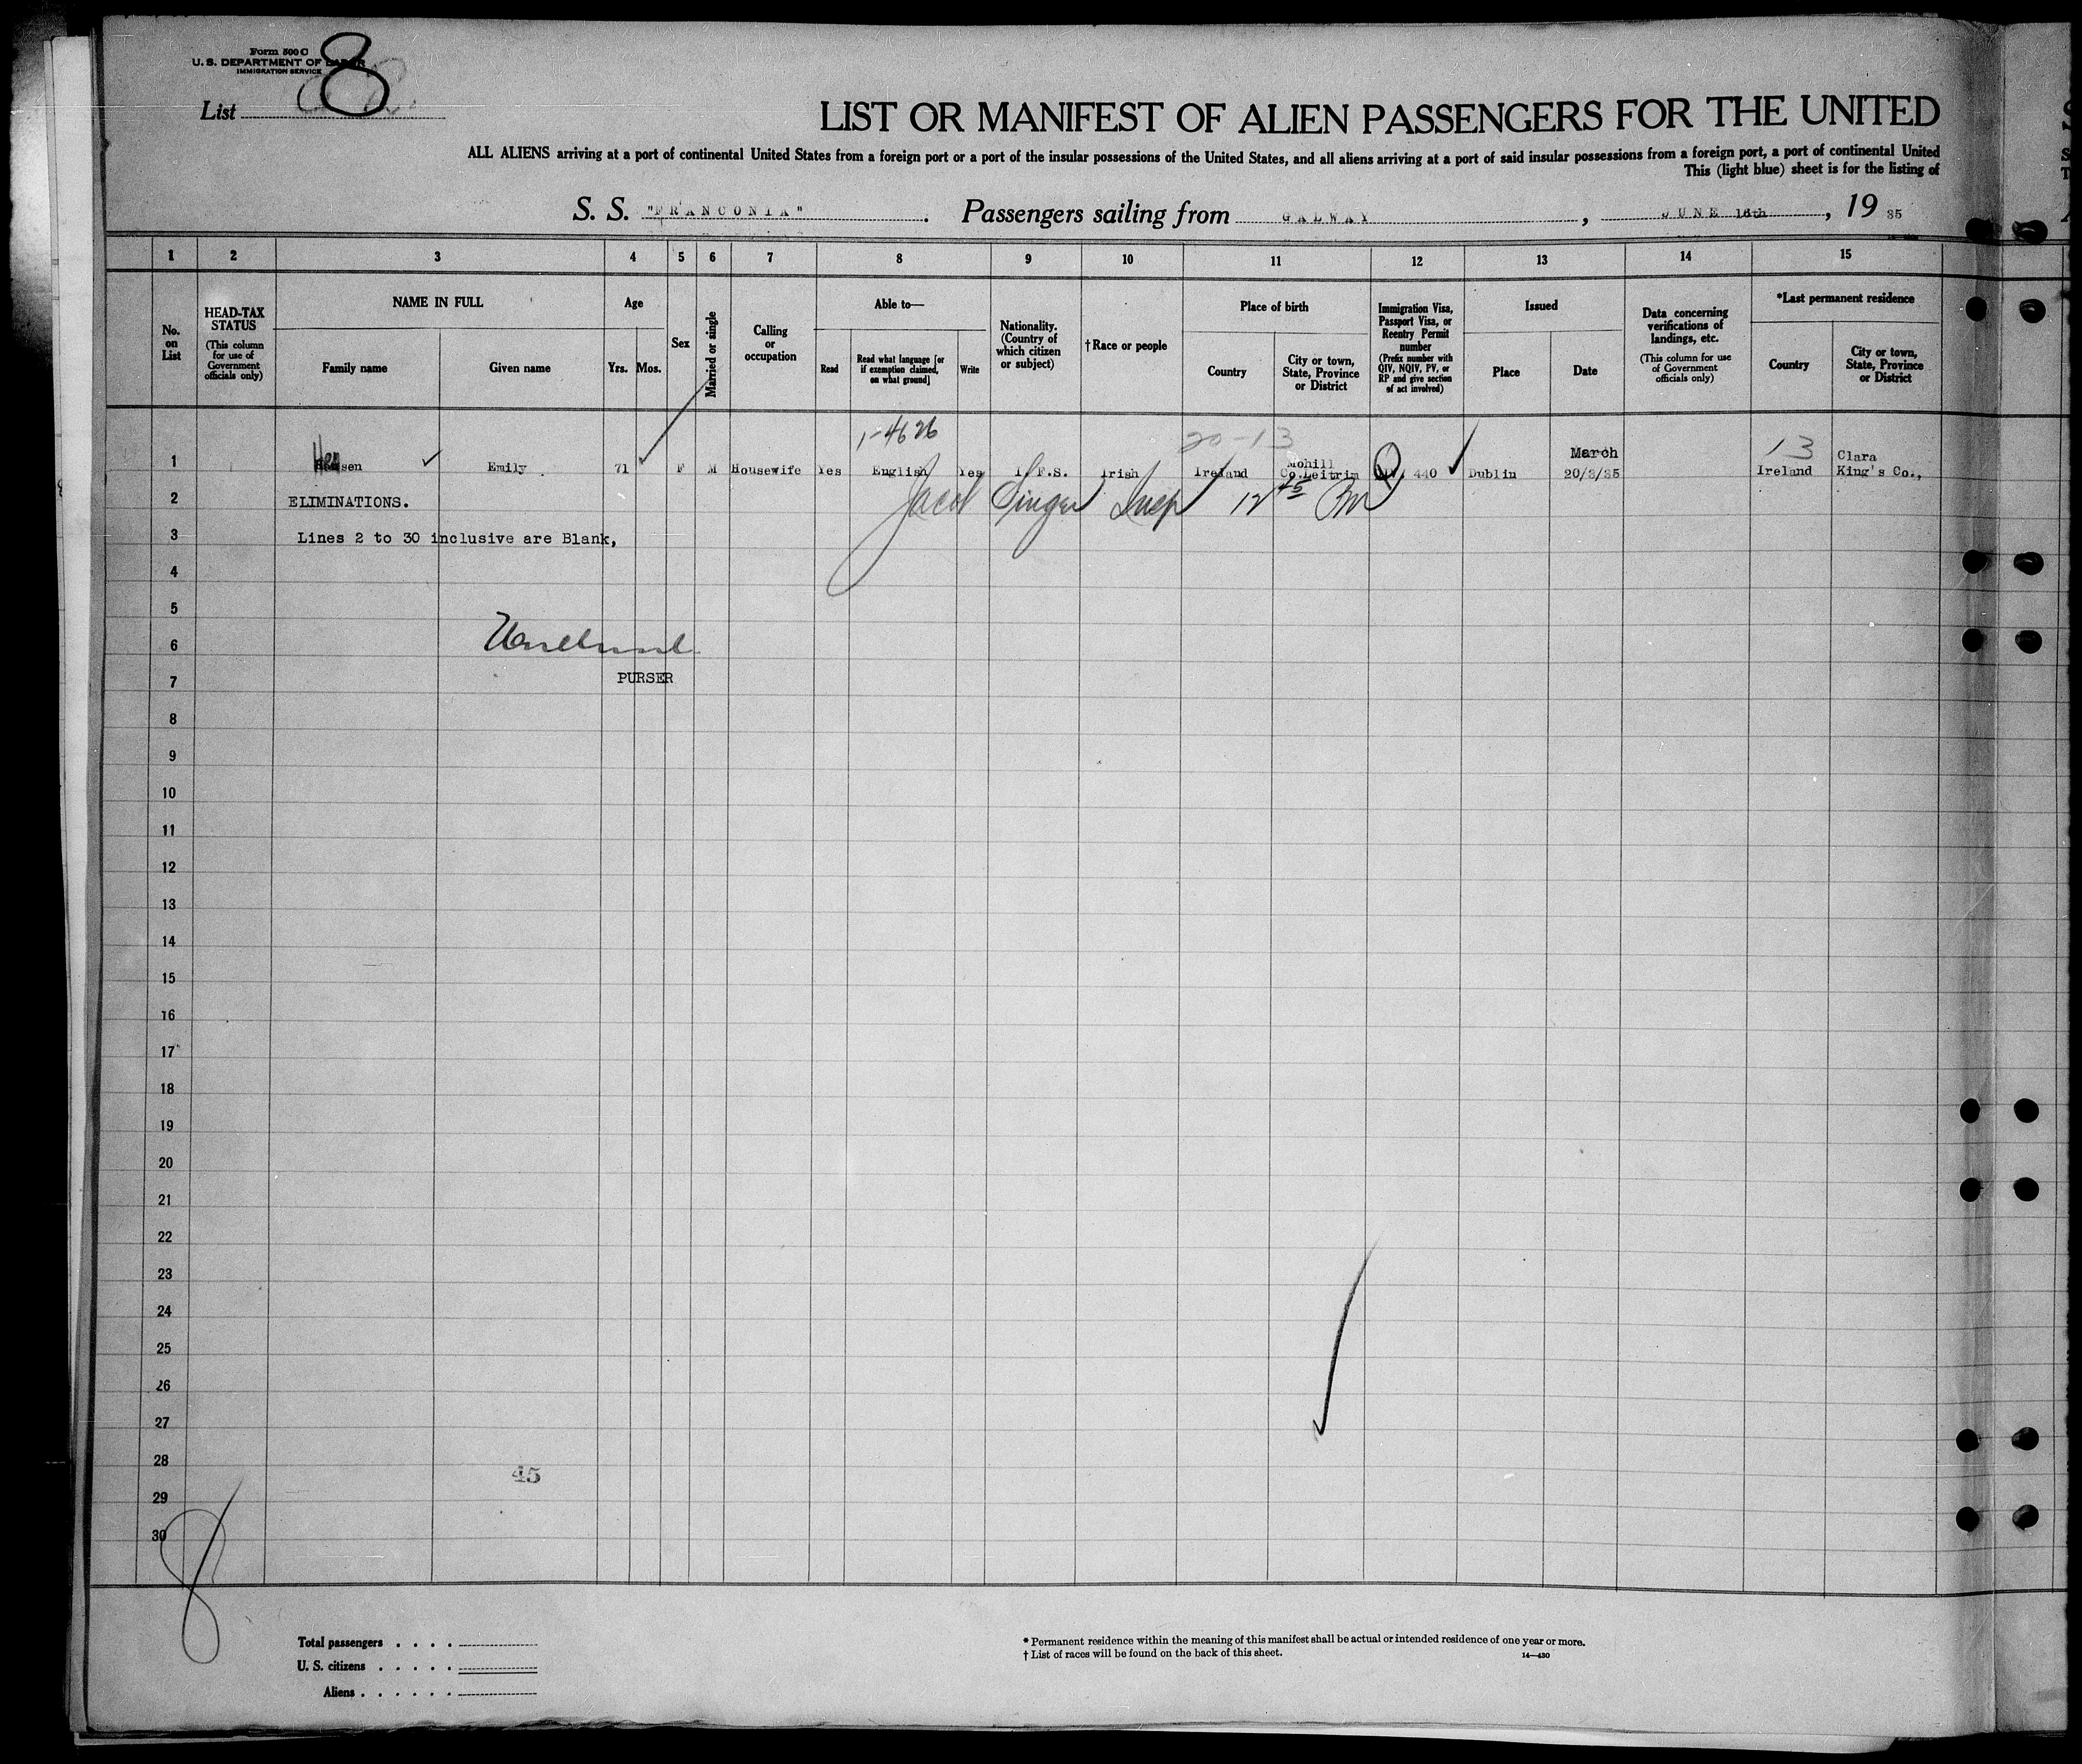 Form 500 C
U. S. DEPARTMENT OF LABOR
IMMIGRATION SERVICE
List 8
LIST OR MANIFEST OF ALIEN PASSENGERS FOR THE UNITED
ALL ALIENS arriving at a port of continental United States from a foreign port or a port of the insular possessions of the United States, and all aliens arriving at a port of said insular possessions from a foreign port, a port of continental United
This (light blue) sheet is for the listing of
S. S. "FRANCONIA". Passengers sailing from GALWAY, JUNE 16th, 19 35
1 2 3 4 5 6 7 8 9 10 11 12 13 14 15
No. on List
HEAD-TAX STATUS
(This column for use of Government officials only)
NAME IN FULL
Family name
Given name
Age
Yrs. Mos.
Sex
Married or single
Calling or occupation
Able to—
Read
Read what language [or if exemption claimed, on what ground]
Write
Nationality. (Country of which citizen or subject)
† Race or people
Place of birth
Country
City or town, State, Province or District
Immigration Visa, Passport Visa, or Reentry Permit number
(Prefix number with QIV, NQIV, PV, or RP and give section of act involved)
Issued
Place
Date
Data concerning verifications of landings, etc.
(This column for use of Government officials only)
*Last permanent residence
Country
City or town, State, Province or District
1-4626 20-13 March 13
Mohill Clara
1 Emily 71 F M Housewife Yes English Yes I.F.S. Irish Ireland Co.Leitrim 440 Dublin 20/3/35 Ireland King's Co.,
2 ELIMINATIONS. Jacob Singer Insp 12 45 Pm
3 Lines 2 to 30 inclusive are Blank,
4
5
6
7 PURSER
8
9
10
11
12
13
14
15
16
17
18
19
20
21
22
23
24
25
26
27
28 45
29
30
8
Total passengers . . . .
U. S. citizens . . . . .
Aliens . . . . . .
* Permanent residence within the meaning of this manifest shall be actual or intended residence of one year or more.
† List of races will be found on the back of this sheet. 14—430